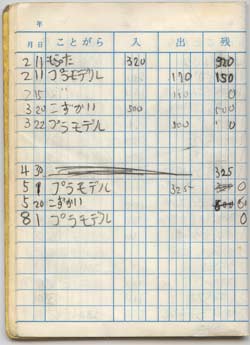 年
月 日 ことがら 入 出 残
2 11 もらった 320 320
2 11 プラモデル 170 150
2 15 〃 150 0
3 20 こずかい 500 500
3 22 プラモデル 500 0
4 30 325
5 1 プラモデル 325 0
5 20 こずかい
8 1 プラモデル 0